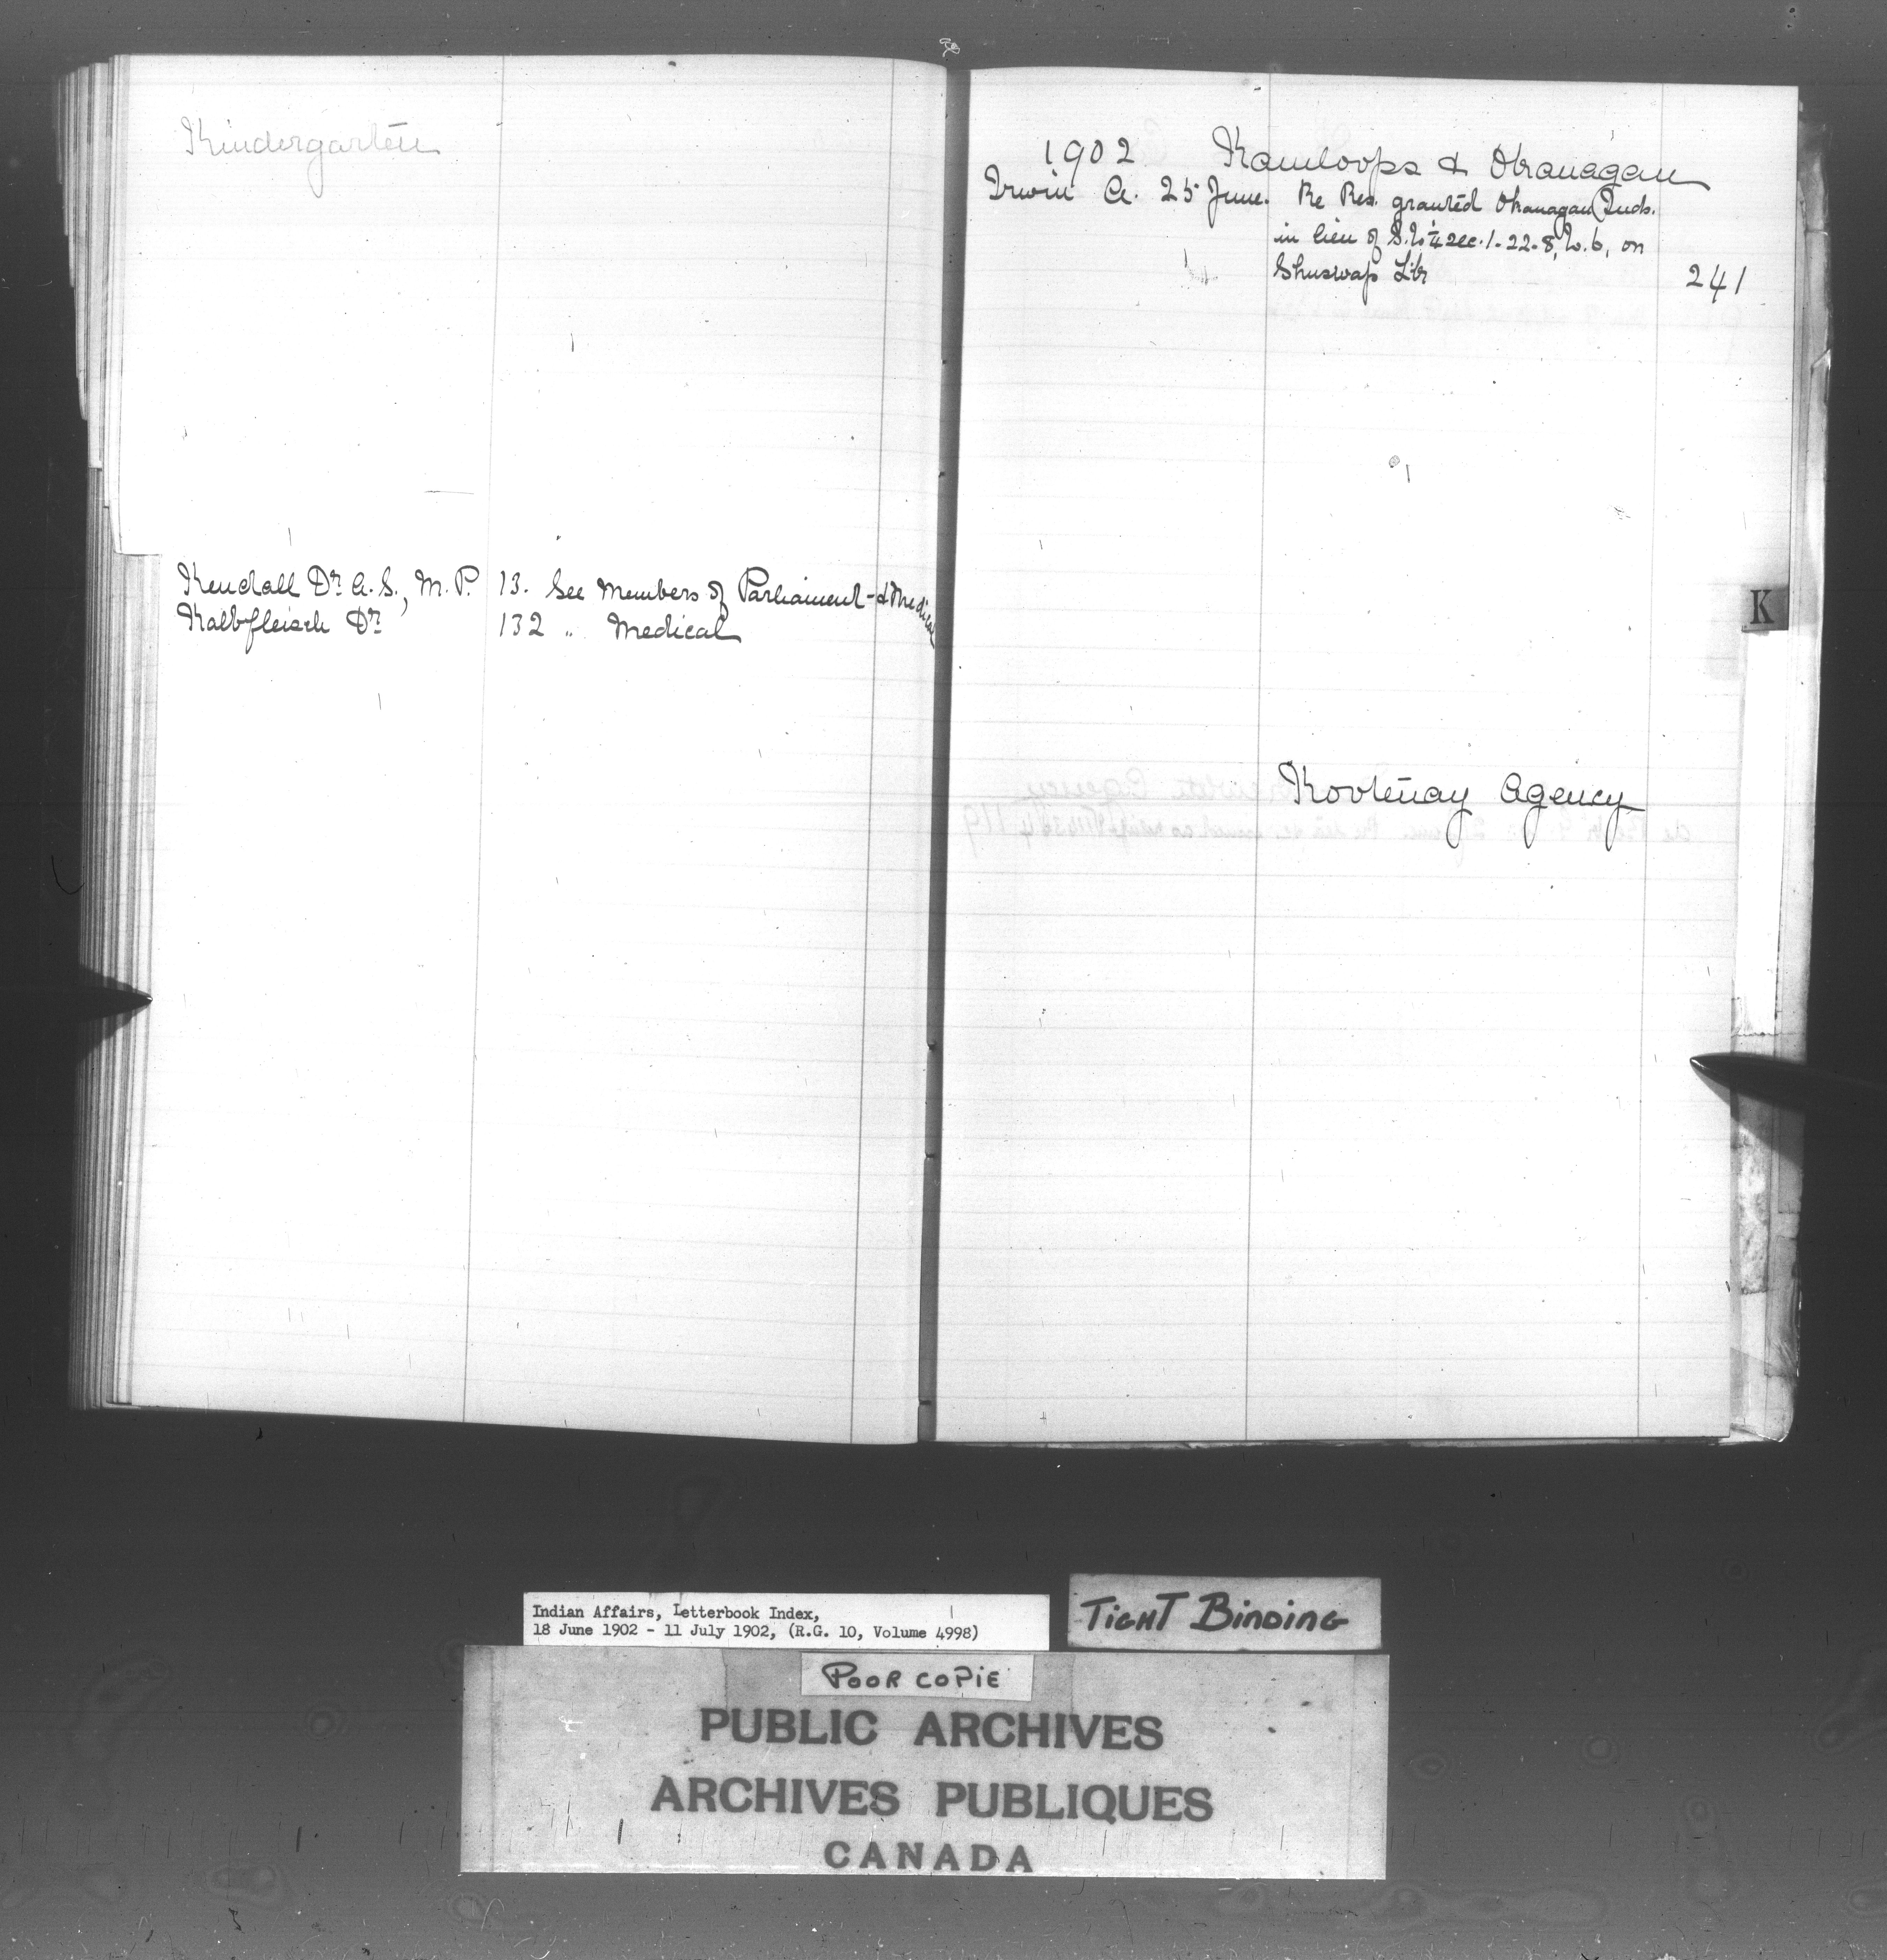 Kindergarten
Kendall Dr. A. S., M. P. 13. See Members of Parliament - & Medical
Kalbfleisch Dr. 132 " Medical
1902 Kamloops & Okanagan
Irwin A. 25 June. Re Res. granted Okanagan Inds.
in lieu of S.W. 1/4 sec. 1-22-8, W. 6, on
Shuswap Lke 241
K
Kootenay Agency
Indian Affairs, Letterbook Index,
18 June 1902 - 11 July 1902, (R.G. 10, Volume 4998)
TIGHT BINDING
POOR COPIE
PUBLIC ARCHIVES
ARCHIVES PUBLIQUES
CANADA